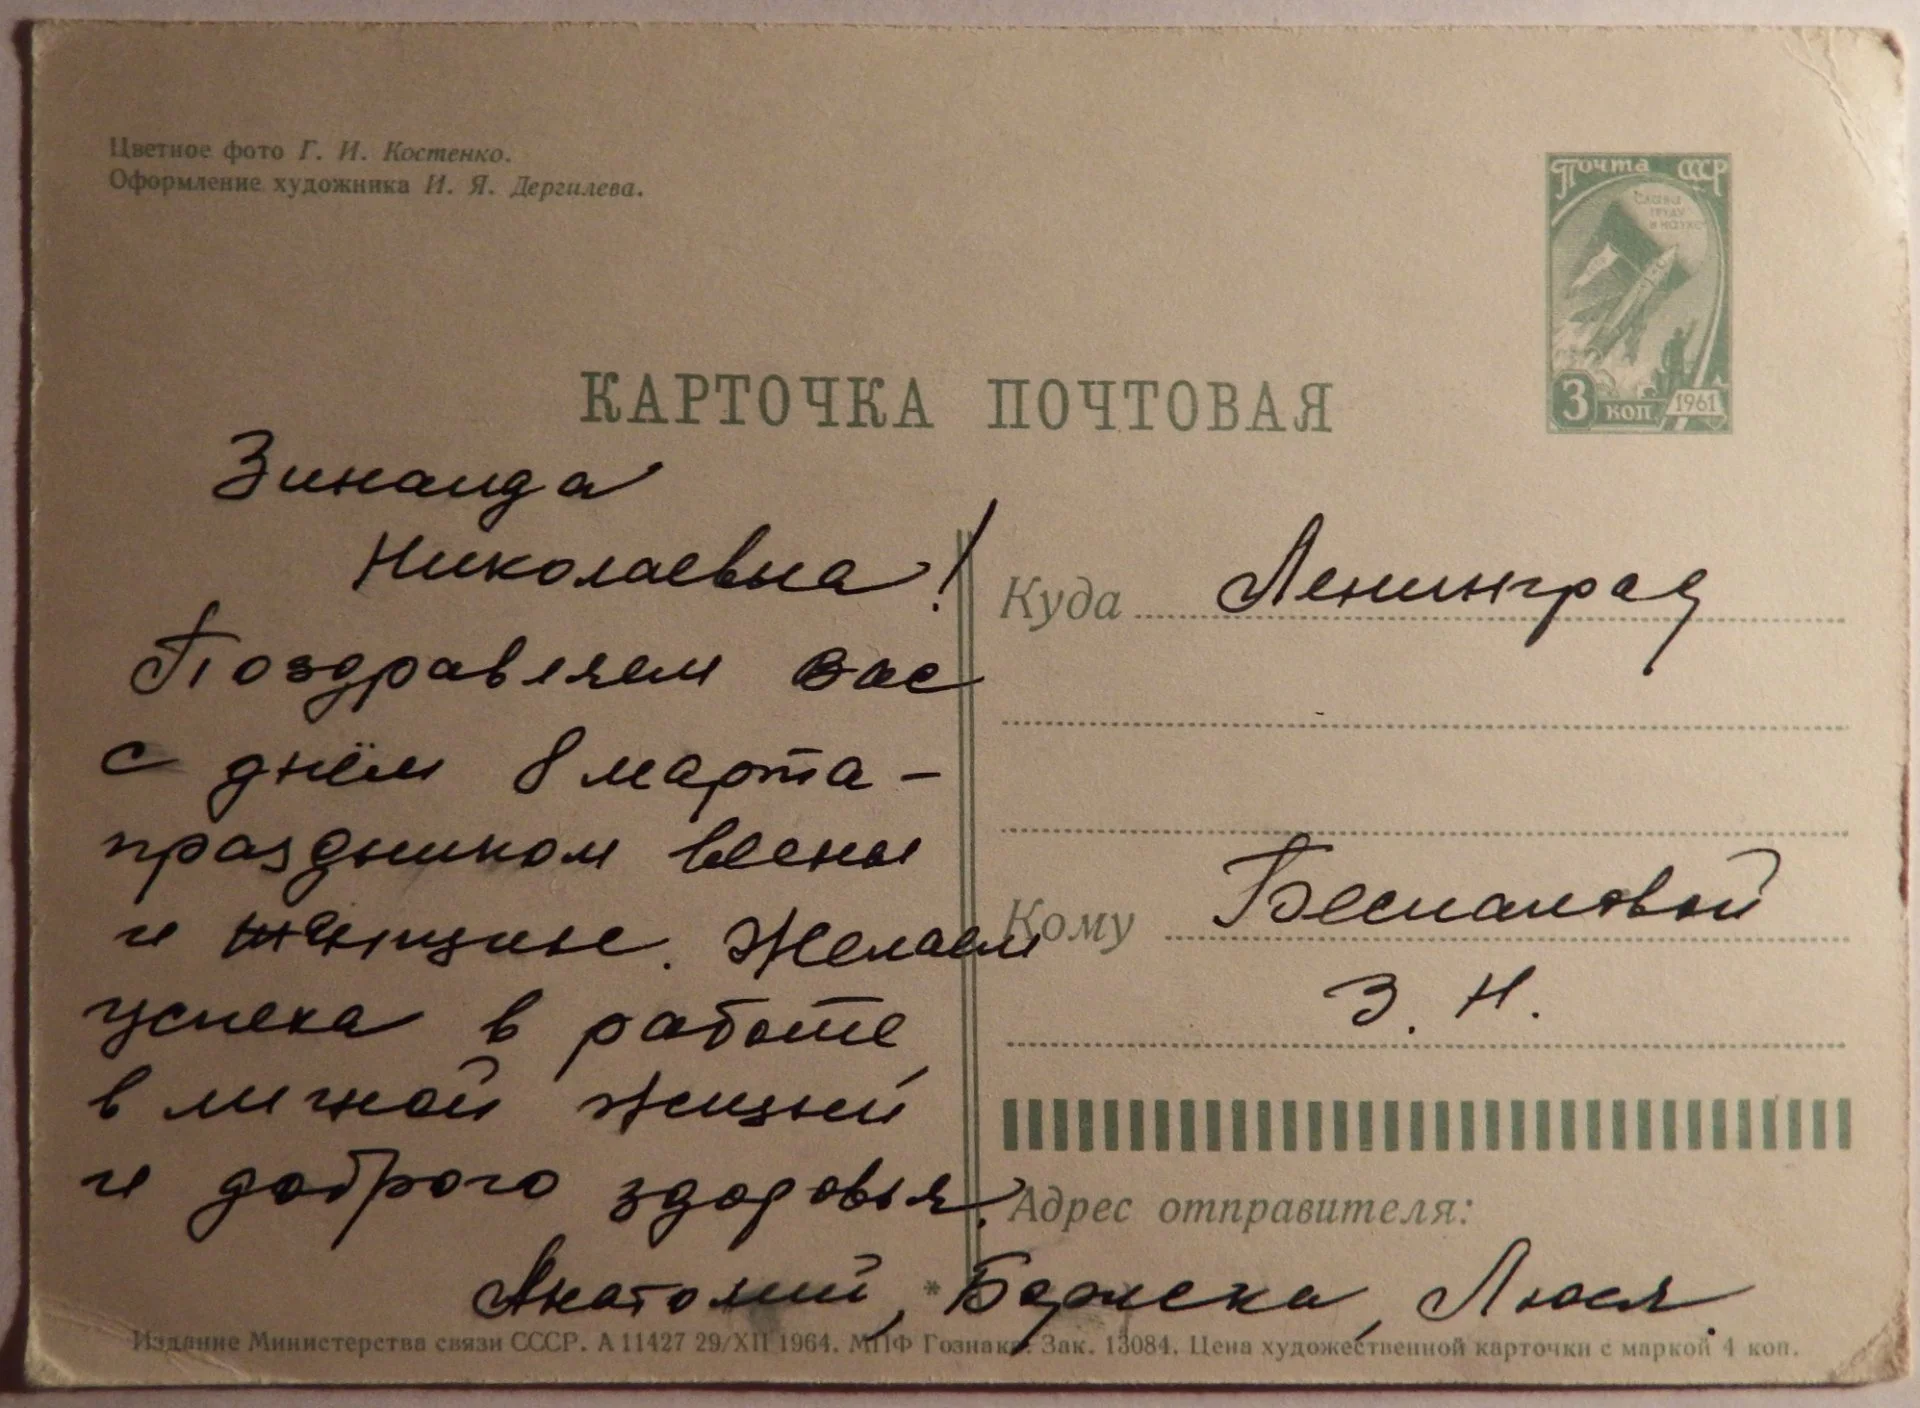 Цветное фото Г. И. Костенко.
Оформление художника И. Я. Дергилева.
Почта СССР
Слава
труду
и науке
3 коп. 1961
КАРТОЧКА ПОЧТОВАЯ
Зинаида
Николаевна!
Поздравляем вас
с днём 8 марта -
праздником весны
и женщины. Желаем
успеха в работе,
в личной жизни
и доброго здоровья.
Анатолий, Люся.
Куда Ленинград
Кому Беспаловой
З. Н.
Адрес отправителя:
Издание Министерства связи СССР. А 11427 29/XII 1964. МПФ Гознака. Зак. 13084. Цена художественной карточки с маркой 4 коп.